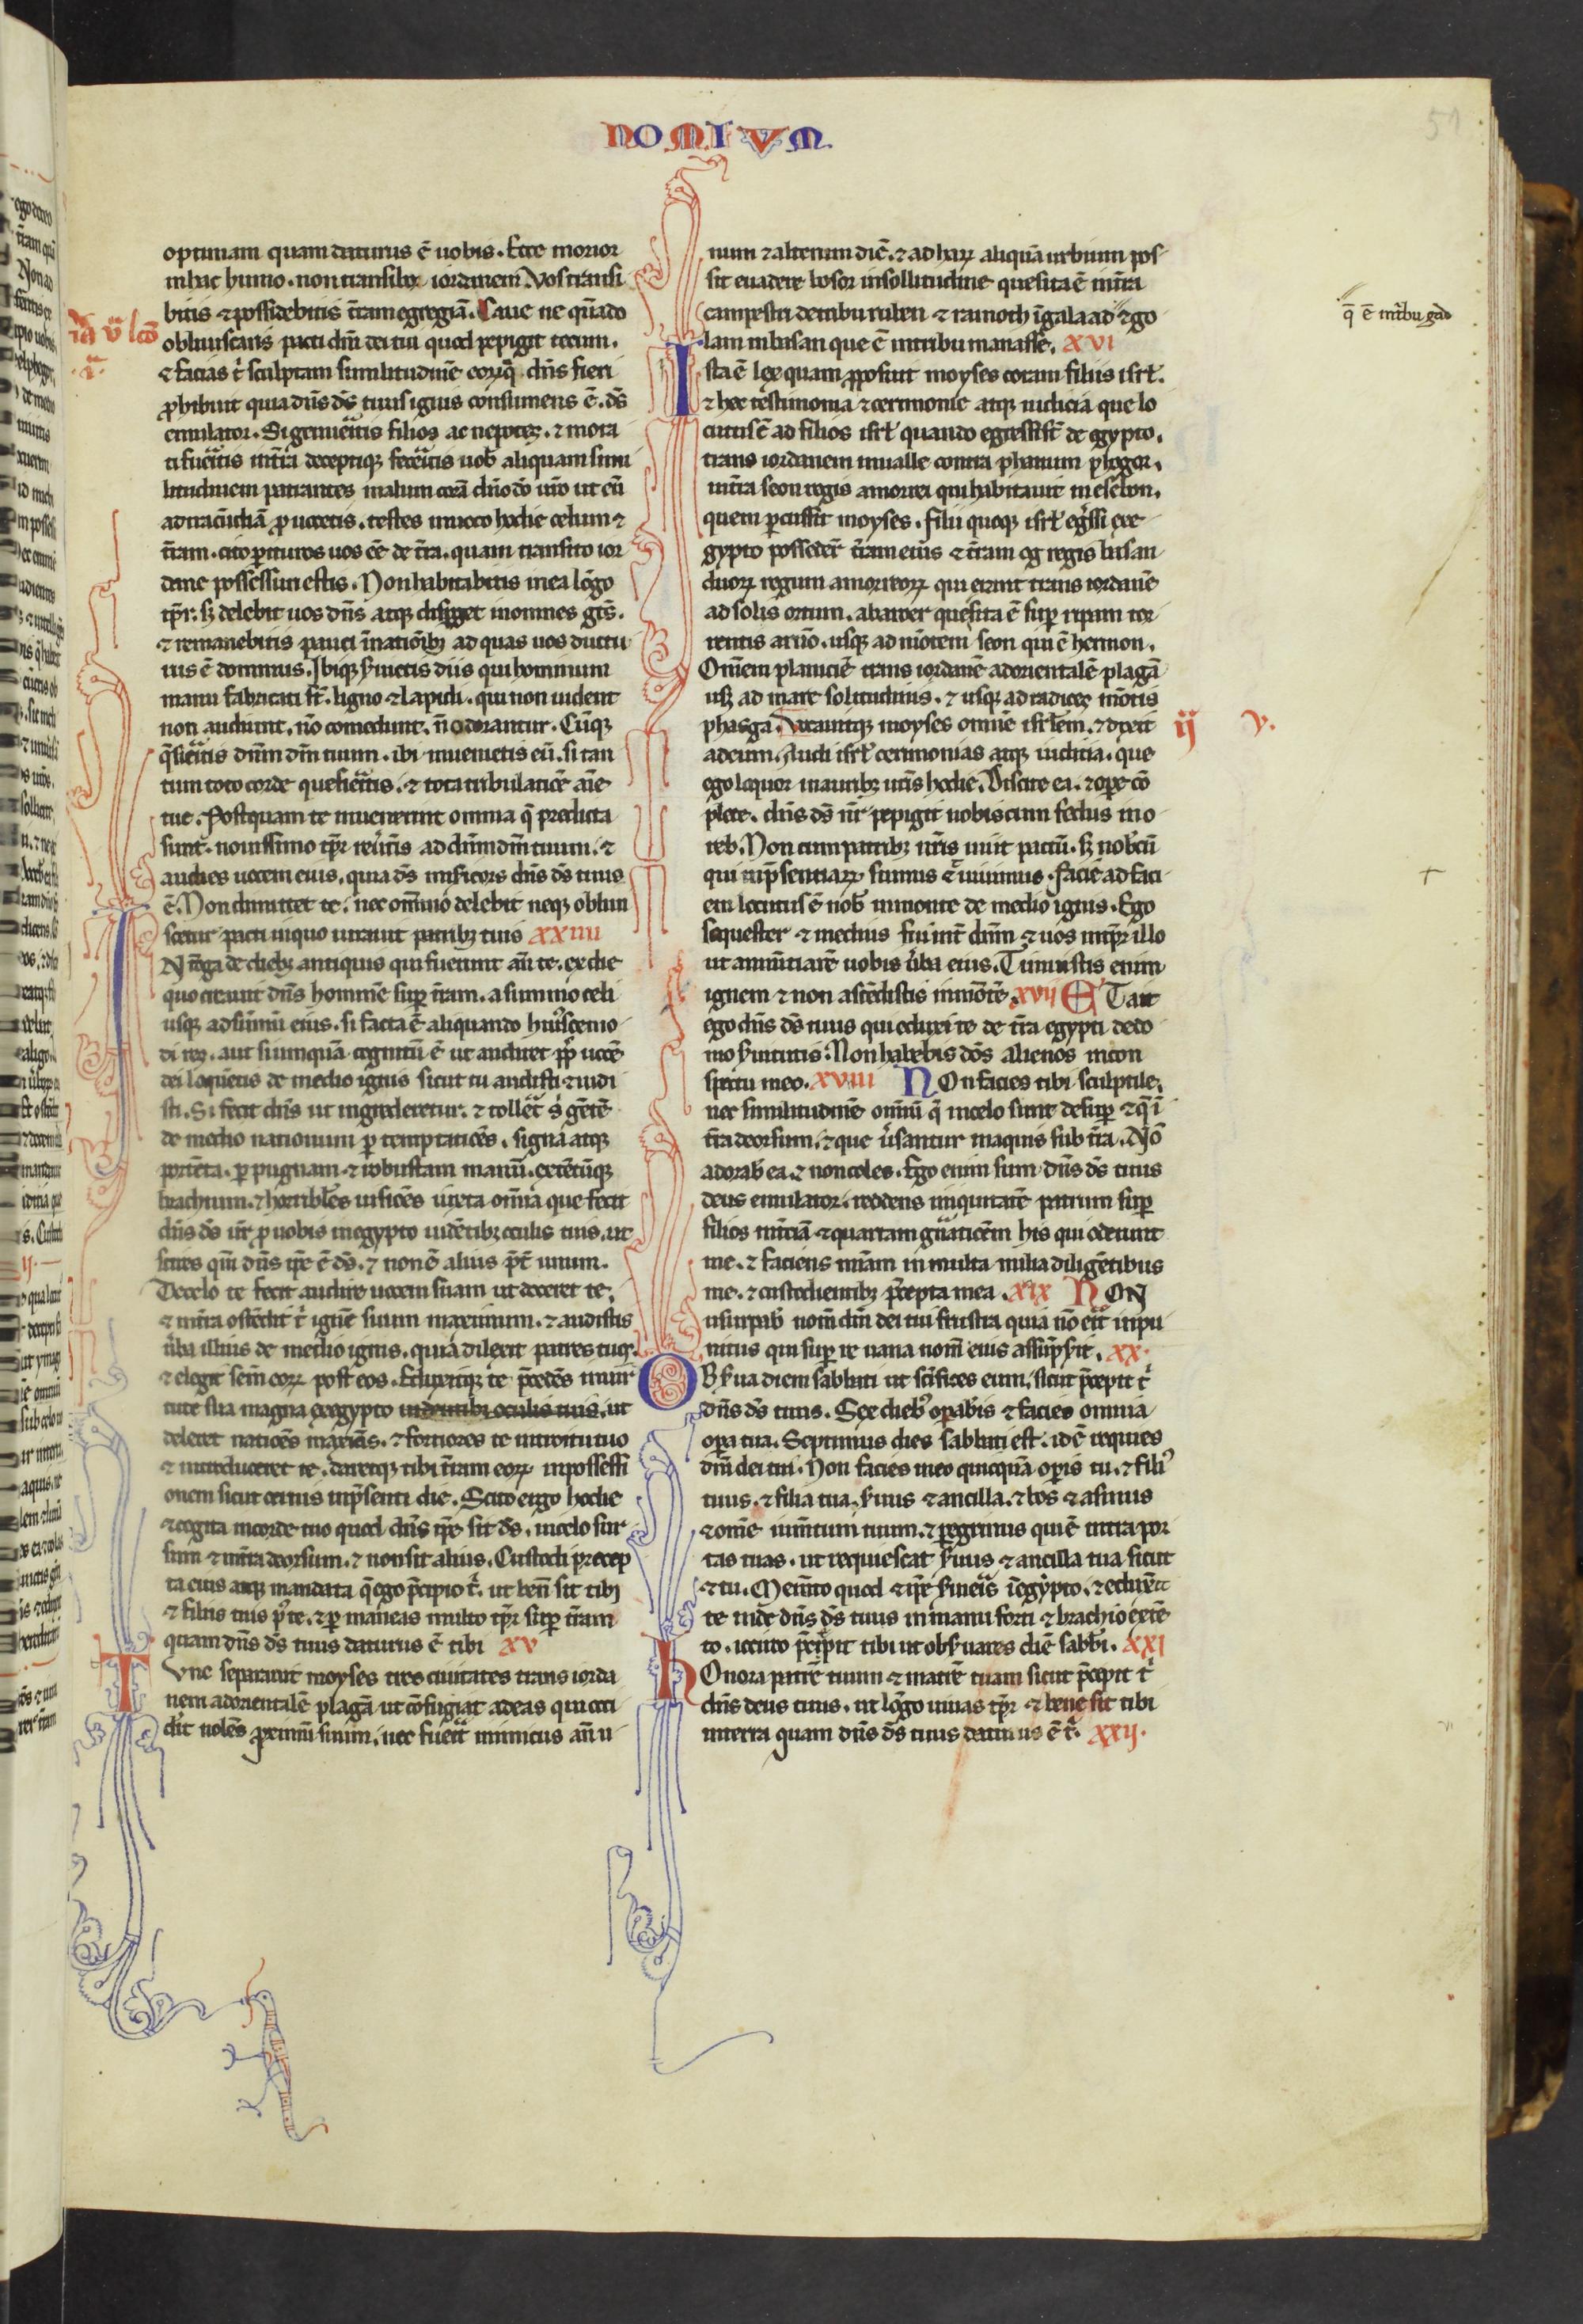 NOMIVM
51
optimam quam daturus ē uobis. Ecce morior
in hac humo. non transibo iordanem. Vos transi
bitis ⁊ possidebitis t̄ram egregiā. Caue ne q̄ndo
obliuiscaris pacti dn̄i dei tui quod pepigit tecum.
⁊ facias t̄ sculptam similitudinē eoꝝ q̄ dn̄s fieri
ꝓhibuit quia dn̄s ds̄ tuus ignis consumens ē. ds̄
emulator. Si genueritis filios ac nepotes. ⁊ mora
ti fueritis in t̄ra deceptiqꝫ feceritis uob̄ aliquam simi
litudinem patrantes malum corā dn̄o do uro ut eū
ad iracūdiā ꝓuocetis. testes inuoco hodie celum ⁊
t̄ram. cito ꝑituros uos eē de t̄ra. quam transito ior
dane possessuri estis. Non habitabitis in ea lōgo
tp̄r. sꝫ delebit uos dn̄s atqꝫ disꝑget in omnes gt̄s.
⁊ remanebitis pauci ī nationibꝫ ad quas uos ductu
rus ē dominus. Ibiqꝫ seruietis diis qui hominum
manu fabricati st̄. ligno ⁊ lapidi. qui non uident
non audiunt. nō comedunt. n̄ odorantur. Cūqꝫ
q̄sieritis dn̄m dm̄ tuum. ibi inuenietis eū. si tan
tum toto corde quesieritis. ⁊ tota tribulatiōe aīe
tue. Postquam te inuenerint omnia q̄ predicta
sunt. nouissimo tp̄r reuertis ad dn̄m dm̄ tuum. ⁊
audies uocem eius. quia ds̄ misericors dn̄s ds̄ tuus
ē. Non dimittet te. nec omnino delebit neqꝫ obliui
scetur pacti in quo iurauit patribꝫ tuis XXIIII
INterroga de diebꝫ antiquis qui fuerunt an̄ te. ex die
quo creauit dn̄s hominē suꝑ t̄ram. a summo celi
usqꝫ ad sūmū eius. si facta ē aliquando huiuscemo
di res. aut si umquā cognitū ē ut audiret ppl̄s uocē
dei loquētis de medio ignis sicut tu audisti ⁊ uidi
sti. Si fecit dn̄s ut ingrederetur. ⁊ tolleret s̄ gētē
de medio nationum ꝑ temptatiōes. signa atqꝫ
portēta. ꝑ pugnam ⁊ robustam manū. extētūqꝫ
brachium. ⁊ horribiles uisiōes iuxta om̄ia que fecit
dn̄s ds̄ ur̄ ꝓ uobis in egypto uidētibꝫ oculis tuis. ut
scires qm̄ dn̄s ip̄e ē ds̄. ⁊ non ē alius p̄t unum.
De celo te fecit audire uocem suam ut doceret te.
⁊ in t̄ra ostēdit t̄ ignē suum maximum. ⁊ audistis
uerba illius de medio ignis. quia dilexit patres tuos.
⁊ elegit semē eoꝝ post eos. Eduxitqꝫ te p̄cedēs in uir
tute sua magna ex egypto uidentibꝫ oculis tuis. ut
deleret natiōes maximas. ⁊ fortiores te in introitu tuo
⁊ introduceret te. daretqꝫ tibi t̄ram eoꝝ in possessi
onem sicut cernis in p̄senti die. Scito ergo hodie
⁊ cogita in corde tuo quod dn̄s ip̄e sit ds̄. in celo sur
sum ⁊ in t̄ra deorsum. ⁊ non sit alius. Custodi precep
ta eius atqꝫ mandata q̄ ego p̄cipio t̄. ut bene sit tibi
⁊ filiis tuis p̄ te. ⁊ ꝑmaneas multo tp̄r suꝑ t̄ram
quam dn̄s ds̄ tuus daturus ē tibi XV
TVnc separauit moyses tres ciuitates trans iorda
nem ad orientalē plagā ut cōfugiat ad eas qui occi
derit nolēs ꝓximū suum. nec fuerit inimicus an̄ u
num ⁊ alterum diē. ⁊ ad haꝝ aliquā urbium pos
sit euadere bosor in sollitudine que sita ē in t̄ra
campestri de tribu ruben ⁊ ramoth ī galaad ⁊ go
q̄ ē ī tribu gad
lam in basan que ē in tribu manasse. XVI
Ista ē lex quam ꝓposuit moyses coram filiis isrl̄.
⁊ hec testimonia ⁊ cerimonie atqꝫ iudicia que lo
cutus ē ad filios isrl̄ quando egressi st̄ de egypto.
trans iordanem in ualle contra phanum phogor.
in t̄ra seon regis amorrei qui habitauit in esebon.
quem ꝑcussit moyses. filii quoqꝫ isrl̄ egressi ex e
gypto possederūt t̄ram eius ⁊ t̄ram og regis basan
duoꝝ regum amorreoꝝ qui erant trans iordanē
ad solis ortum. ab aroer que sita ē suꝑ ripam tor
rentis arnō. usqꝫ ad mōtem seon qui ē hermon.
Omēm planiciē trans iordanē ad orientalē plagā
usqꝫ ad mare solitudinis. ⁊ usqꝫ ad radices mōtis
phasga. Vocauitqꝫ moyses omnē isrl̄em. ⁊ dixit
ij V.
ad eum. Audi isrl̄ cerimonias atqꝫ iudicia. que
ego loquor in auribꝫ uris hodie. Discite ea. ⁊ ope cō
plete. dn̄s ds̄ nr̄ pepigit nobiscum fedus in o
reb. Non cum patribꝫ nris iniit pactū. sꝫ nobcū
qui inp̄sentiaꝝ sumus ⁊ uiuimus. facie ad faci
em locutus ē nob̄ in monte de medio ignis. Ego
sequester ⁊ medius fui int̄ dn̄m ⁊ uos in tp̄r illo
ut annūtiarē uobis uerba eius. Timuistis enim
ignem ⁊ non ascēdistis in mōtē. XVII ET ait
ego dn̄s ds̄ tuus qui eduxi te de t̄ra egypti de do
mo seruitutis. Non habebis dōs alienos in con
spectu meo. XVIII NOn facies tibi sculptile.
nec similitudinē omniū q̄ in celo sunt desuꝑ ⁊ q̄ ī
t̄ra deorsum. ⁊ que uersantur in aquis sub t̄ra. Nō
adorab̄ ea. ⁊ non coles. Ego enim sum dn̄s ds̄ tuus
deus emulator. reddens iniquitatē patrum suꝑ
filios in t̄ciā ⁊ quartam gn̄atiōem his qui oderunt
me. ⁊ faciens mīam in multa milia diligētibus
me. ⁊ custodientibꝫ p̄cepta mea. XIX NON
usurpab̄ nom̄ dn̄i dei tui frustra quia nō erit inpu
nitus qui suꝑ re uana nom̄ eius assūpserit. XX.
OBserua diem sabbati ut scīfices eum. sicut p̄cepit t̄
dn̄s ds̄ tuus. Sex diebꝰ oꝑabis ⁊ facies omnia
oꝑa tua. Septimus dies sabbati est. id ē requies
dn̄i dei tui. Non facies in eo quicquā oꝑis tu. ⁊ filiꝰ
tuus. ⁊ filia tua. seruus ⁊ ancilla. ⁊ bos ⁊ asinus
⁊ omē iumtum tuum. ⁊ ꝑegrinus qui ē intra por
tas tuas. ut requiescat seruus ⁊ ancilla tua sicut
⁊ tu. Memto quod ⁊ ip̄e seruieris ī egypto. ⁊ eduxerit
te inde dn̄s ds̄ tuus in manu forti ⁊ brachio extē
to. iccirco p̄cipit tibi ut obseruares diē sabb̄i. XXI
HOnora patrē tuum ⁊ matrē tuam sicut p̄cepit t̄
dn̄s deus tuus. ut lōgo uiuas tp̄r ⁊ bene sit tibi
in terra quam dn̄s ds̄ tuus daturus ē t̄. XXII.